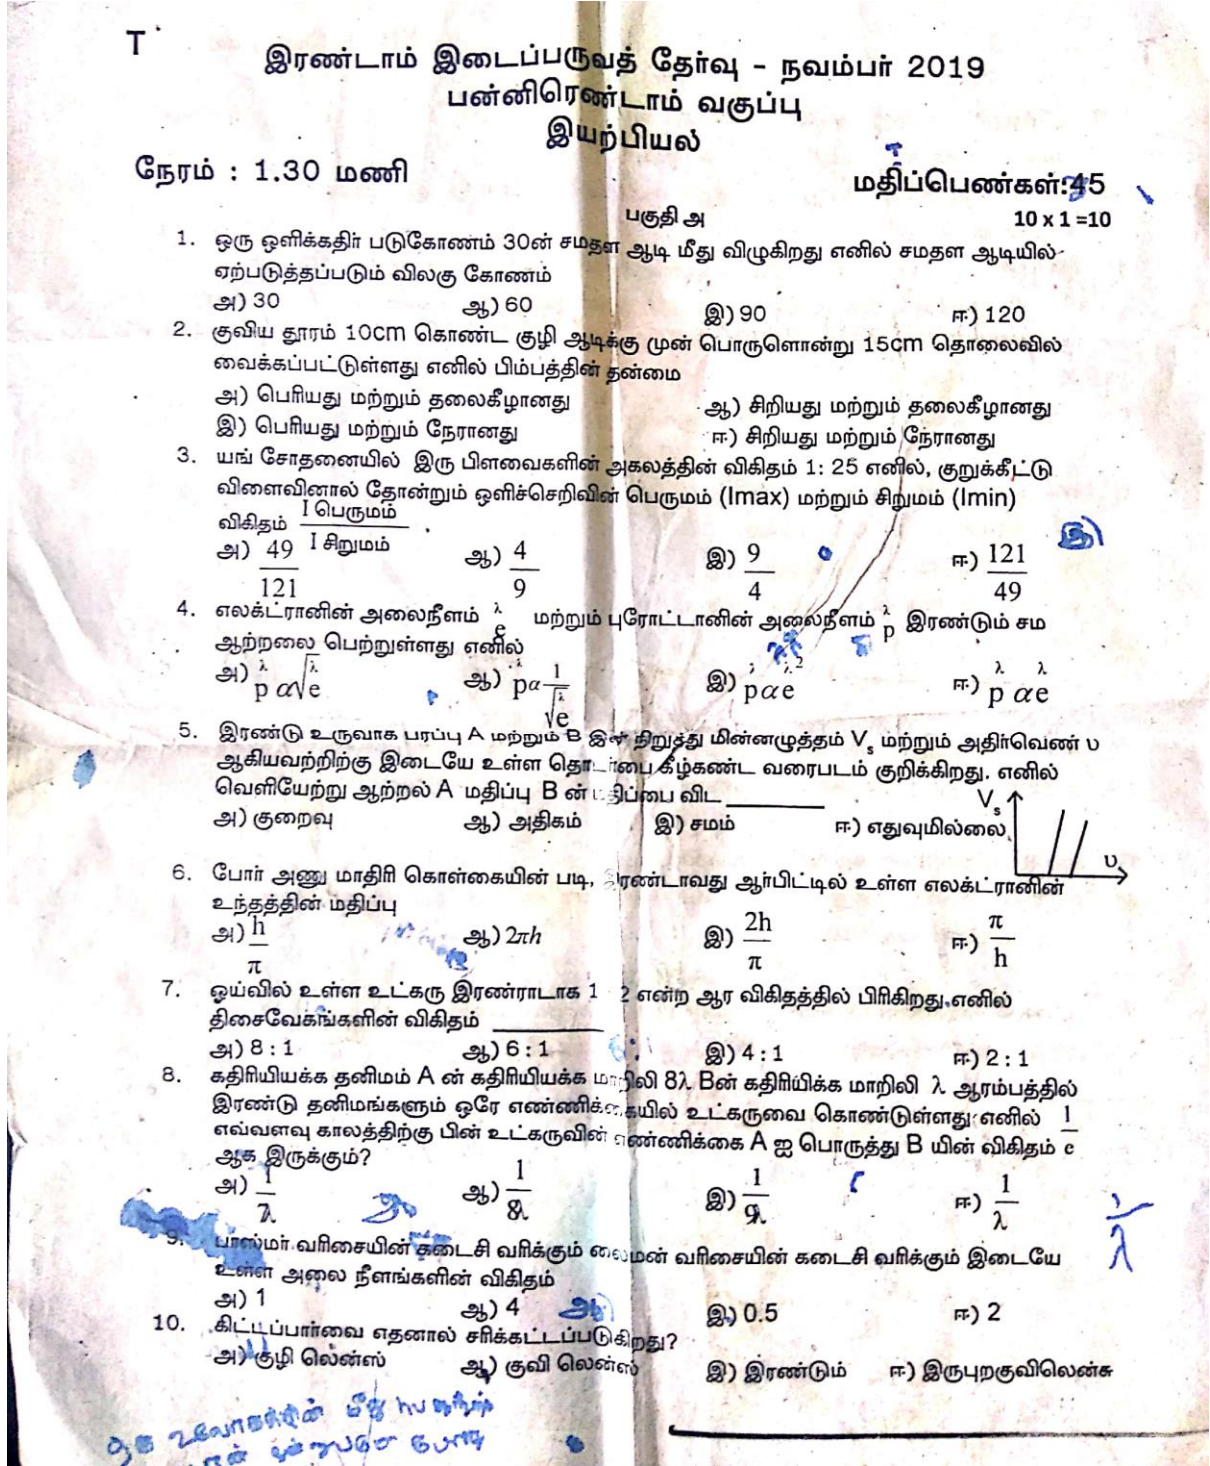 T
இரண்டாம் இடைப்பருவத் தேர்வு - நவம்பர் 2019
பன்னிரெண்டாம் வகுப்பு
இயற்பியல்
நேரம் : 1.30 மணி மதிப்பெண்கள்:45
பகுதி அ 10 x 1 =10
1. ஒரு ஒளிக்கதிர் படுகோணம் 30ன் சமதள ஆடி மீது விழுகிறது எனில் சமதள ஆடியில்
ஏற்படுத்தப்படும் விலகு கோணம்
அ) 30 ஆ) 60 இ) 90 ஈ) 120
2. குவிய தூரம் 10cm கொண்ட குழி ஆடிக்கு முன் பொருளொன்று 15cm தொலைவில்
வைக்கப்பட்டுள்ளது எனில் பிம்பத்தின் தன்மை
அ) பெரியது மற்றும் தலைகீழானது ஆ) சிறியது மற்றும் தலைகீழானது
இ) பெரியது மற்றும் நேரானது ஈ) சிறியது மற்றும் நேரானது
3. யங் சோதனையில் இரு பிளவைகளின் அகலத்தின் விகிதம் 1: 25 எனில், குறுக்கீட்டு
விளைவினால் தோன்றும் ஒளிச்செறிவின் பெருமம் (Imax) மற்றும் சிறுமம் (Imin)
விகிதம் I பெருமம் / I சிறுமம்
இ)
அ) 49/121 ஆ) 4/9 இ) 9/4 ஈ) 121/49
4. எலக்ட்ரானின் அலைநீளம் λe மற்றும் புரோட்டானின் அலைநீளம் λp இரண்டும் சம
ஆற்றலை பெற்றுள்ளது எனில்
அ) λp α √λe ஆ) λp α 1/√λe இ) λp α λe² ஈ) λp α λe
5. இரண்டு உருவாக பரப்பு A மற்றும் B இன் நிறுத்து மின்னழுத்தம் Vs மற்றும் அதிர்வெண் υ
ஆகியவற்றிற்கு இடையே உள்ள தொடர்பை கீழ்கண்ட வரைபடம் குறிக்கிறது. எனில்
வெளியேற்று ஆற்றல் A மதிப்பு B ன் மதிப்பை விட ________
அ) குறைவு ஆ) அதிகம் இ) சமம் ஈ) எதுவுமில்லை
Vs
υ
6. போர் அணு மாதிரி கொள்கையின் படி, இரண்டாவது ஆர்பிட்டில் உள்ள எலக்ட்ரானின்
உந்தத்தின் மதிப்பு
அ) h/π ஆ) 2πh இ) 2h/π ஈ) π/h
7. ஓய்வில் உள்ள உட்கரு இரண்ராடாக 1 2 என்ற ஆர விகிதத்தில் பிரிகிறது எனில்
திசைவேகங்களின் விகிதம் ________
அ) 8 : 1 ஆ) 6 : 1 இ) 4 : 1 ஈ) 2 : 1
8. கதிரியியக்க தனிமம் A ன் கதிரியியக்க மாறிலி 8λ Bன் கதிரியிக்க மாறிலி λ ஆரம்பத்தில்
இரண்டு தனிமங்களும் ஒரே எண்ணிக்கையில் உட்கருவை கொண்டுள்ளது எனில் 1/e
எவ்வளவு காலத்திற்கு பின் உட்கருவின் எண்ணிக்கை A ஐ பொருத்து B யின் விகிதம்
ஆக இருக்கும்?
அ) 1/7λ ஆ) 1/8λ இ) 1/9λ ஈ) 1/λ
1/λ
9. பாஸ்மர் வரிசையின் கடைசி வரிக்கும் லைமன் வரிசையின் கடைசி வரிக்கும் இடையே
உள்ள அலை நீளங்களின் விகிதம்
அ) 1 ஆ) 4 இ) 0.5 ஈ) 2
10. கிட்டப்பார்வை எதனால் சரிக்கட்டப்படுகிறது?
அ) குழி லென்ஸ் ஆ) குவி லென்ஸ் இ) இரண்டும் ஈ) இருபுறகுவிலென்சு